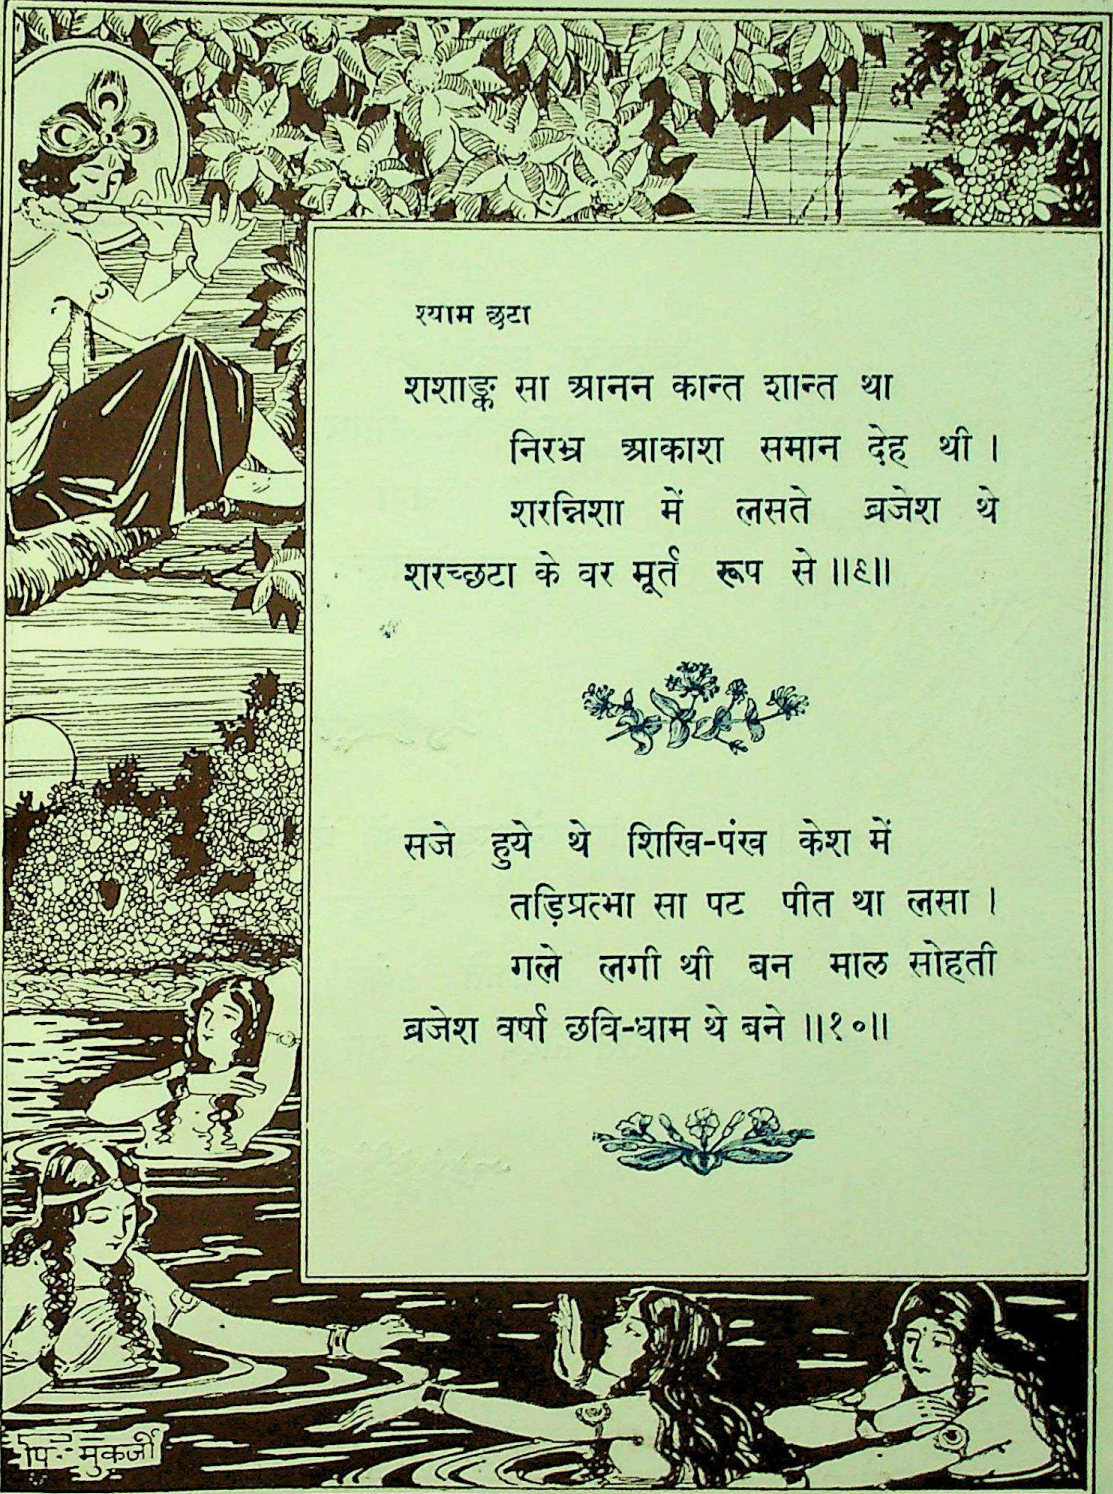 श्याम छटा
शशाङ्क सा आनन कान्त शान्त था
निरभ्र आकाश समान देह थी ।
शरन्निशा में लसते ब्रजेश थे
शरच्छटा के वर मूर्त रूप से ॥९॥
सजे हुये थे शिखि-पंख केश में
तड़ित्प्रभा सा पट पीत था लसा ।
गले लगी थी बन माल सोहती
ब्रजेश वर्षा छवि-धाम थे बने ॥१०॥
पि· मुकर्जी